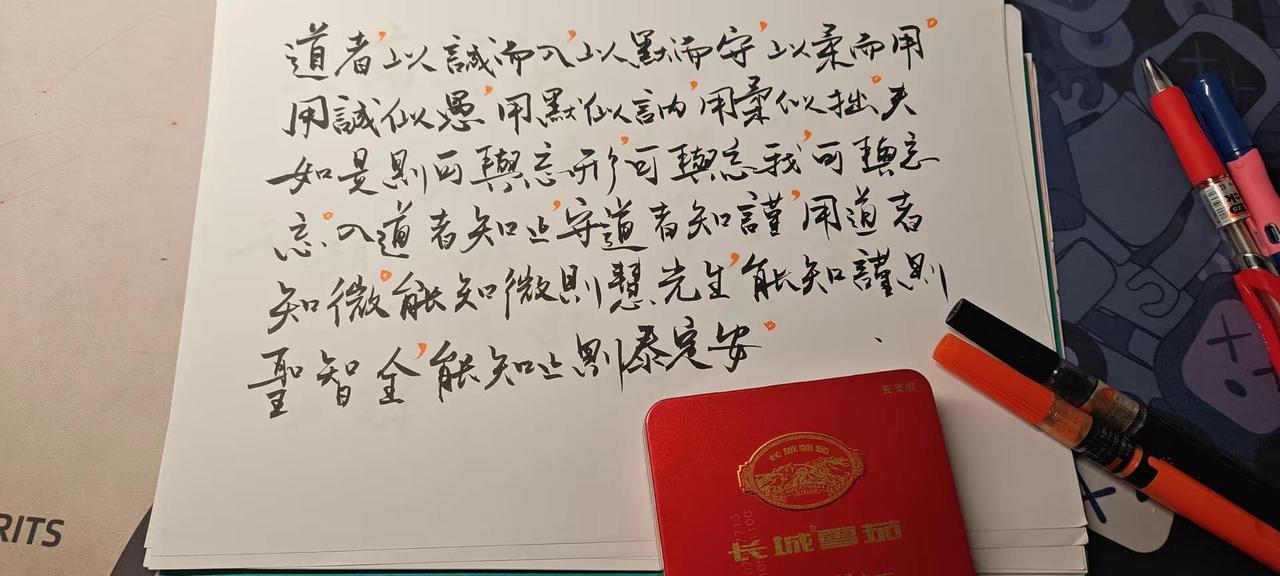 道者，以誠而入，以默而守，以柔而用。
用誠似愚，用默似訥，用柔似拙。夫
如是則可與忘形，可與忘我，可與忘
忘。入道者知止，守道者知謹，用道者
知微。能知微則慧光生，能知謹則
聖智全，能知止則泰定安。
五支装
长城雪茄
长城雪茄
RITS